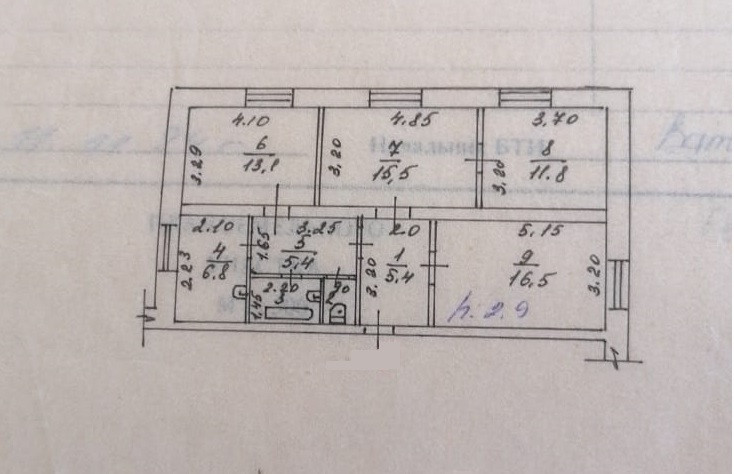 4.10
4.85
3.70
3.29
6
13,1
3,20
7
15,5
3,20
8
11.8
Начальник БТИ
2.10
3.25
2.0
5,15
1.65
5
5,4
4
6.8
2,23
1
5,4
3.20
9
16,5
3,20
2.20
3
1,45
2
90
h. 2.9